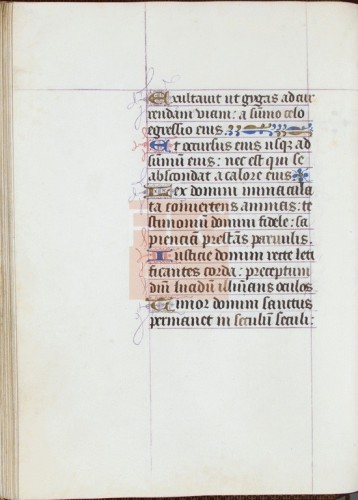 Exultauit ut gygas ad cur
rendam uiam: a sūmo celo
egressio eius.
Et occursus eius usqȝ ad
sūmū eius: nec est qui se
abscondat a calore eius.
Lex domini immacula
ta conuertens animas: te
stimoniū domini fidele: sa
pienciam prestās paruulis.
Iusticie domini recte leti
ficantes corda: preceptum
dn̄i lucidū illumīans oculos.
Timor domini sanctus
permanet in seculū seculi: